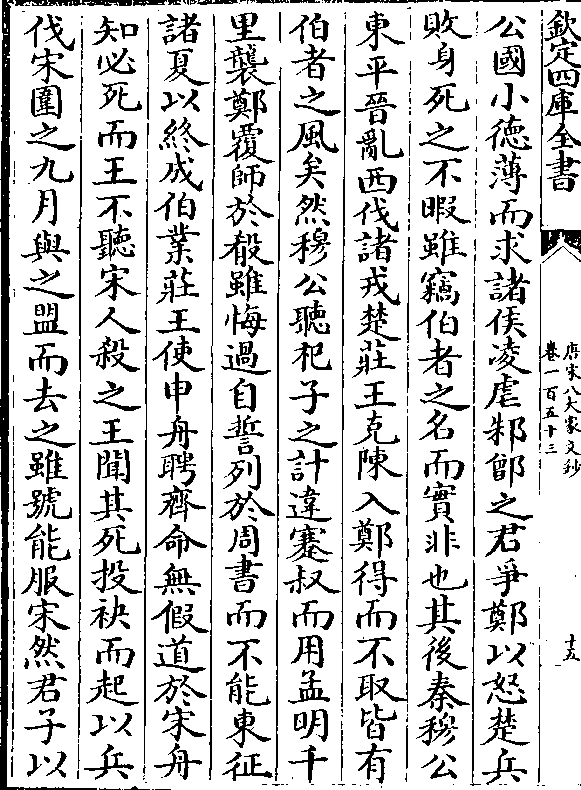 欽定四庫全書
唐宋八大家文鈔
卷一百五十三
十五
公國小德薄而求諸侯凌虐邾鄫之君爭鄭以怒楚兵
敗身死之不暇雖竊伯者之名而實非也其後秦穆公
東平晉亂西伐諸戎楚莊王克陳入鄭得而不取皆有
伯者之風矣然穆公聽杞子之計違蹇叔而用孟明千
里襲鄭覆師於殽雖悔過自誓列於周書而不能東征
諸夏以終成伯業莊王使申舟聘齊命無假道於宋舟
知必死而王不聽宋人殺之王聞其死投袂而起以兵
伐宋圍之九月與之盟而去之雖號能服宋然君子以